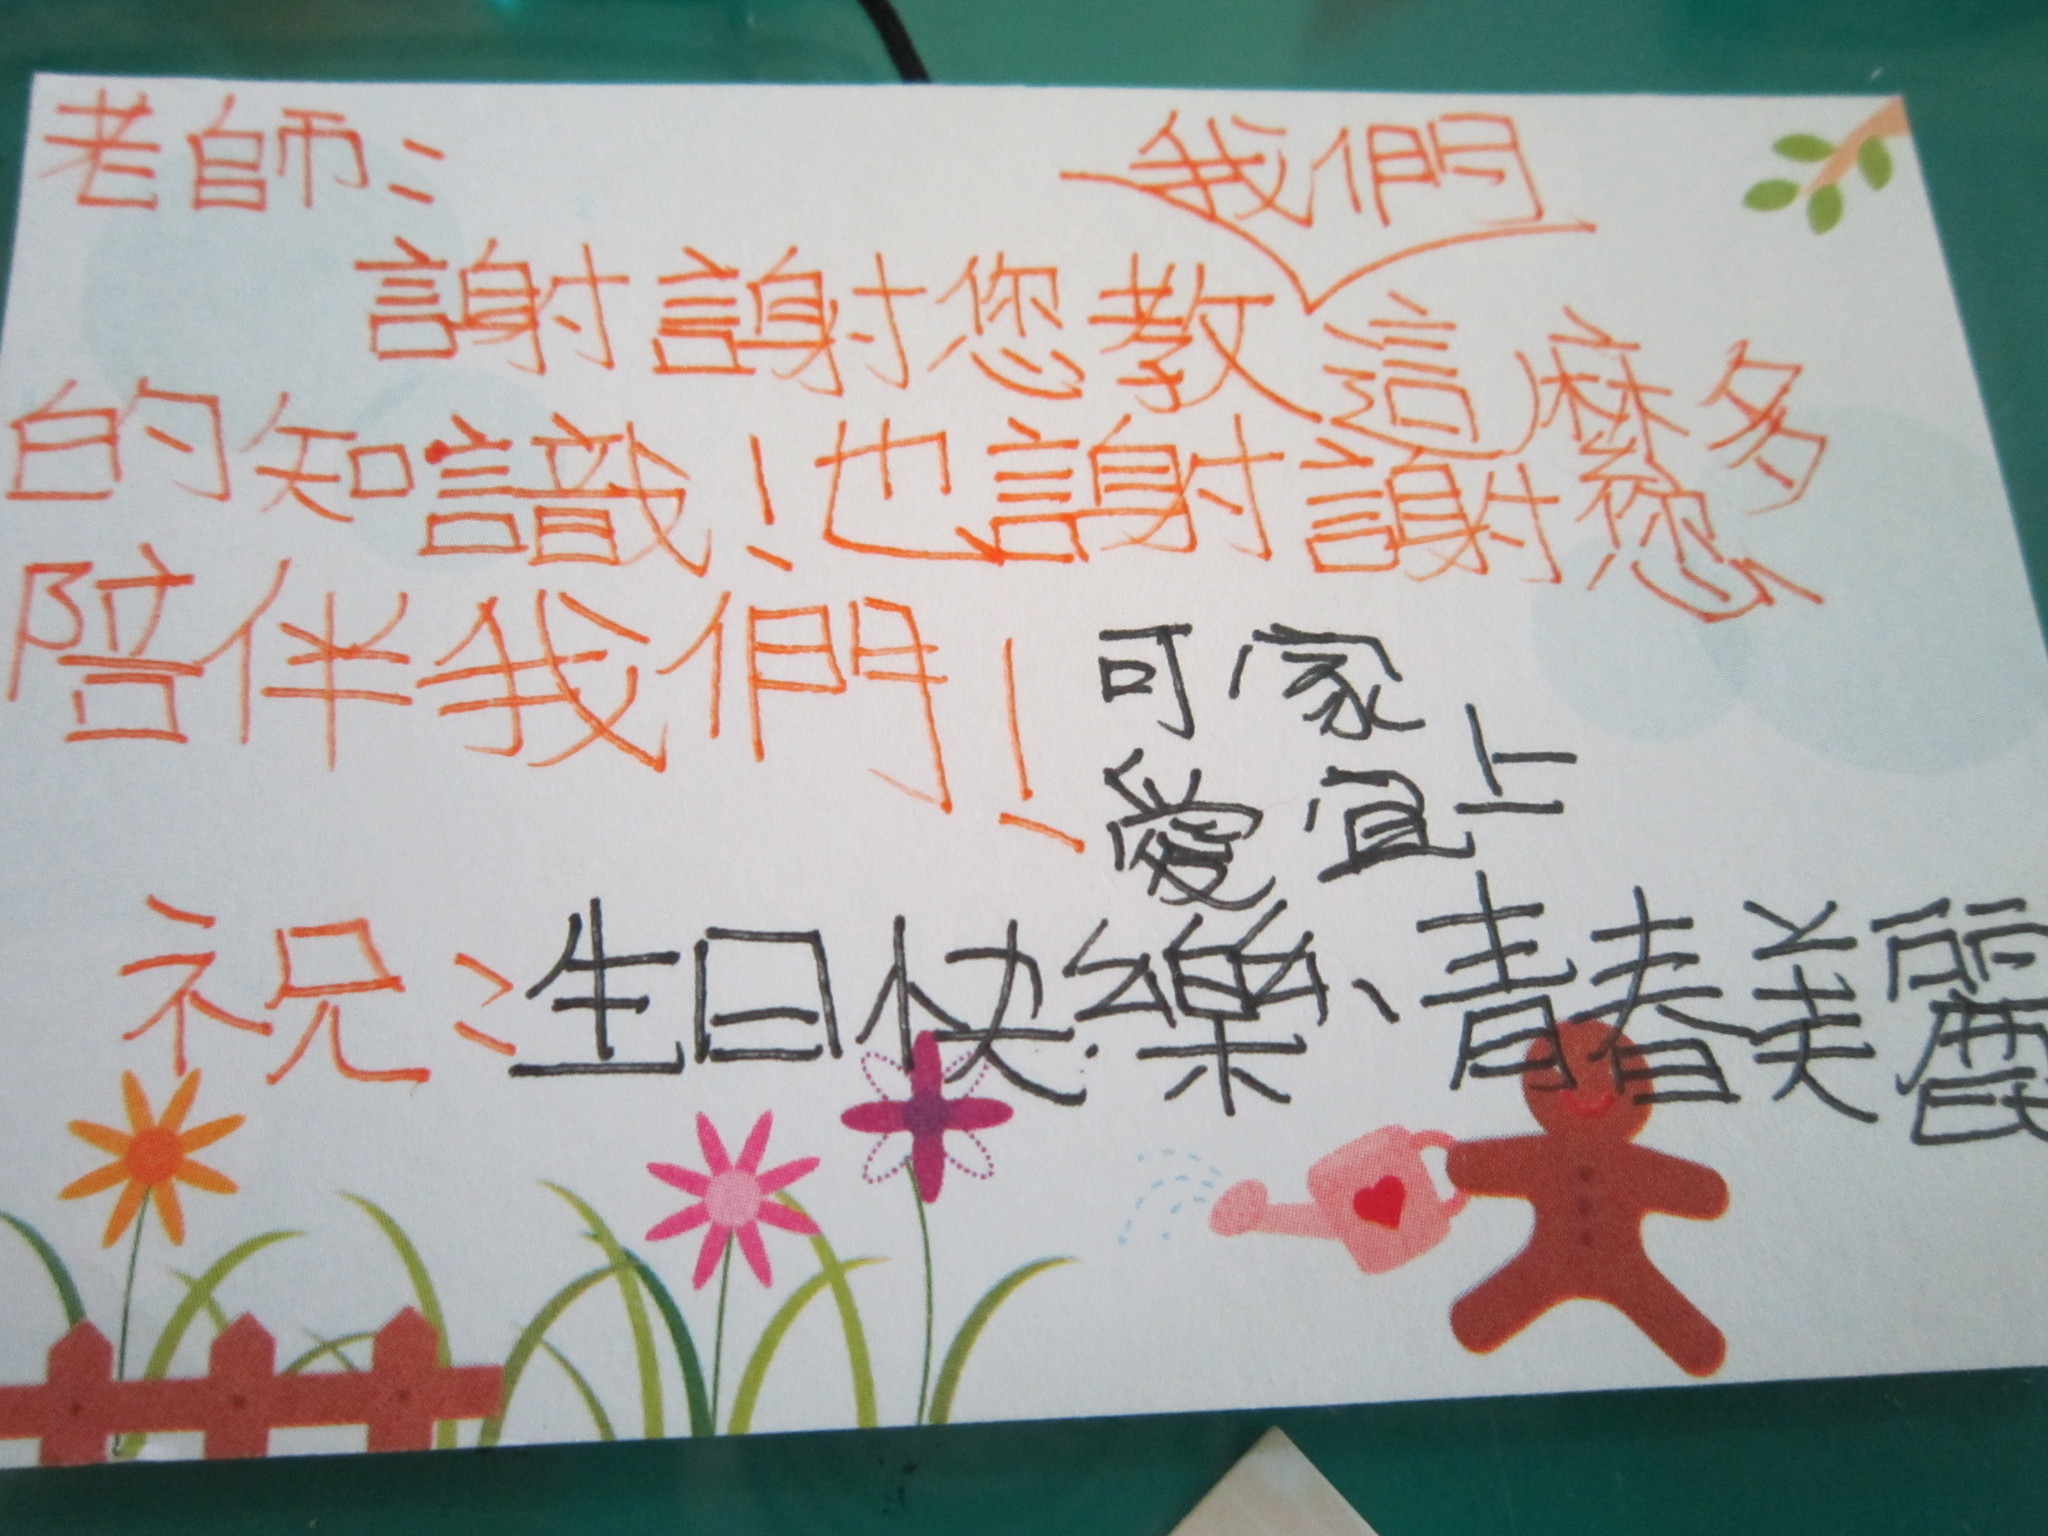 老師：
我們
謝謝您教這麼多
的知識！也謝謝您
陪伴我們！
可家
愛宜上
祝：生日快樂、青春美麗